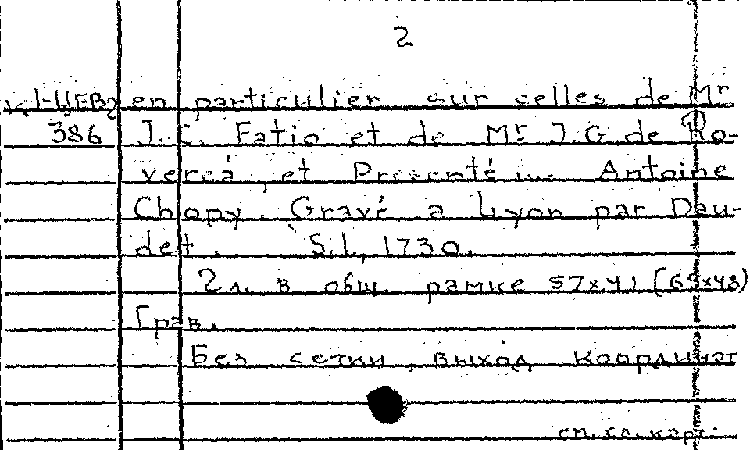 2
en particulier sur celles de Mr
386 J. C. Fatio et de Mr. J. G. de Ro-
verea et Presenté ... Antoine
Chopy. Gravé a Lyon par Dau-
det. S.l., 1730.
2 л. в общ. рамке 57x41 (65x48)
Грав.
Без сетки, выход координат
см. сл. карт.